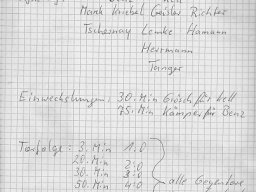 Mark Knebel Geisler Richter
Tschesnay Lemke Hamann
Herrmann
Tanger
Einwechslungen: 30. Min Grösch für Kell
75. Min Kämper für Benz
Torfolge: 3. Min 1:0
20. Min 2:0
30. Min 3:0
50. Min 4:0
alle Gegentore